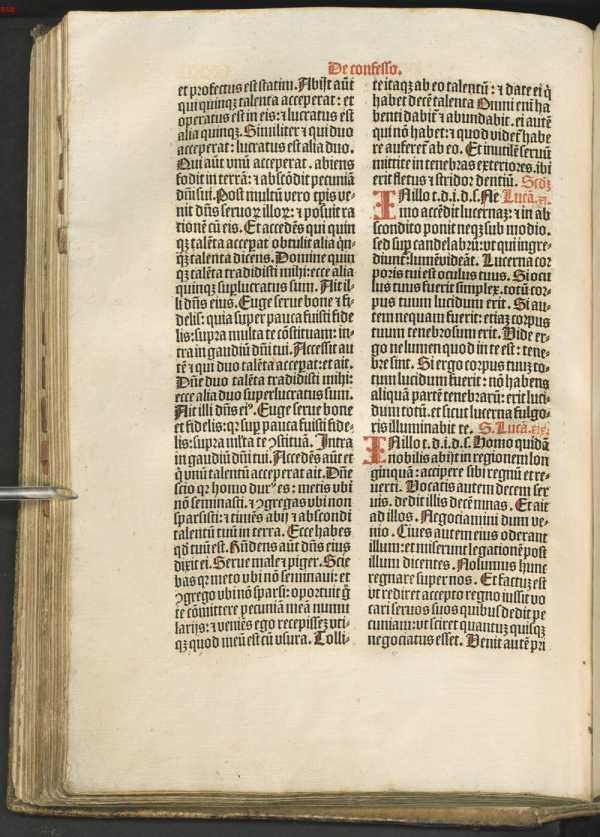 De confesso.
et profectus est statim. Abijt aūt
qui quinqꝫ talenta acceperat: et
operatus est in eis: ⁊ lucratus est
alia quinqꝫ. Similiter ⁊ qui duo
acceperat: lucratus est alia duo.
Qui aūt vnū acceperat. abiens
fodit in terrā: ⁊ abscōdit pecuniā
dn̄i sui. Post multū vero tp̄is ve-
nit dn̄s seruoꝝ illoꝝ: ⁊ posuit ra
tionē cū eis. Et accedēs qui quin
qꝫ talēta accepat obtulit alia q̄n-
qꝫ talenta dicens. Domine quin
qꝫ talēta tradidisti mihi: ecce alia
quinqꝫ suplucratus sum. Ait il-
li dn̄s eius. Euge serue bone ⁊ fi-
delis: quia super pauca fuisti fide
lis: supra multa te cōstituam: in-
tra in gaudiū dn̄i tui. Accessit au
tē ⁊ qui duo talēta accepat: et ait.
Dn̄e duo talēta tradidisti mihi:
ecce alia duo superlucratus sum.
Ait illi dn̄s eiꝰ. Euge serue bone
et fidelis: qꝛ sup pauca fuisti fide-
lis: supra ml̄ta te ꝯstituā. Intra
in gaudiū dn̄i tui. Accedēs aūt et
q̄ vnū talentū acceperat ait. Dn̄e
scio qꝛ homo durꝰ es: metis vbi
nō seminasti. ⁊ ꝯgregas vbi non
sparsisti: ⁊ timēs abij ⁊ abscondi
talentū tuū in terra. Ecce habes
qd̄ tuū est. Rn̄dens aūt dn̄s eius
dixit ei. Serue male ⁊ piger. Scie
bas qꝛ meto vbi nō seminaui: et
ꝯgrego vbi nō sparsi: oportuit g̊
te cōmittere pecuniā meā numu
larijs: ⁊ veniēs ego recepissꝫ vti-
qꝫ quod meū est cū vsura. Tolli-
te itaqꝫ ab eo talentū: ⁊ date ei q̄
habet decē talenta Omni eni ha
benti dabit᷑ ⁊ abundabit. ei autē
qui nō habet: ⁊ quod videt᷑ habe
re auferet᷑ ab eo. Et inutilē seruū
mittite in tenebras exteriores. ibi
erit fletus ⁊ stridor dentiū. Scd̄ꝫ
IN illo t. d. i. d. s. Ne Lucā. xi.
mo accēdit lucernaꝫ: ⁊ in ab
scondito ponit neqꝫ sub modio.
sed sup candelabrū: vt qui ingre-
diunt᷑: lumē videāt. Lucerna cor
poris tui est oculus tuus. Si ocu
lus tuus fuerit simplex. totū cor-
pus tuum lucidum erit. Si au-
tem nequam fuerit: etiaꝫ corpus
tuum tenebrosum erit. Vide er-
go ne lumen quod in te est: tene-
bre sint. Si ergo corpus tuuꝫ to-
tum lucidum fuerit: nō habens
aliquā partē tenebrarū: erit luci-
dum totū. et sicut lucerna fulgo-
ris illuminabit te. S. Lucā. xix.
IN illo t. d. i. d. s. Homo quidā
nobilis abijt in regionem lon
ginquā: accipere sibi regnū et re-
uerti. Vocatis autem decem ser
uis. dedit illis decē mnas. Et ait
ad illos. Negociamini dum ve-
nio. Ciues autem eius oderant
illum: et miserunt legationē post
illum dicentes. Nolumus hunc
regnare super nos. Et factuꝫ est
vt rediret accepto regno iussit vo
cari seruos suos quibus dedit pe
cuniam: vt sciret quantuꝫ quisqꝫ
negociatus esset. Venit autē pri